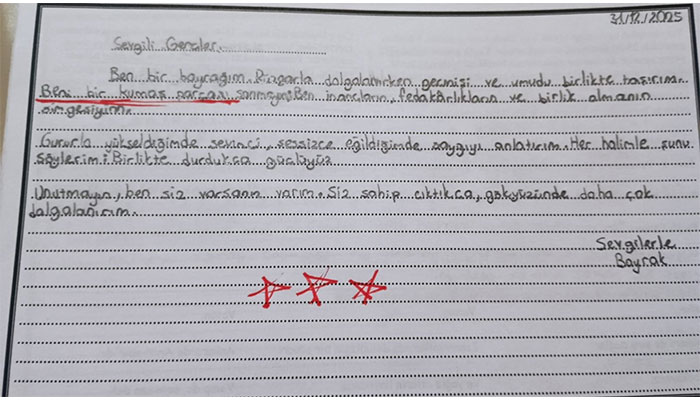 31/12/2025
Sevgili Gençler,
Ben bir bayrağım. Rüzgarla dalgalanırken geçmişi ve umudu birlikte taşırım.
Beni bir kumaş parçası sanmayın; Ben inançların, fedakarlıkların ve birlik olmanın
simgesiyim.
Gururla yükseldiğimde sevinci, sessizce eğildiğimde saygıyı anlatırım. Her halimle şunu
söylerim: Birlikte durdukça güçlüyüz
Unutmayın, ben siz varsanız varım. Siz sahip çıktıkça, gökyüzünde daha çok
dalgalanırım.
Sevgilerle
Bayrak